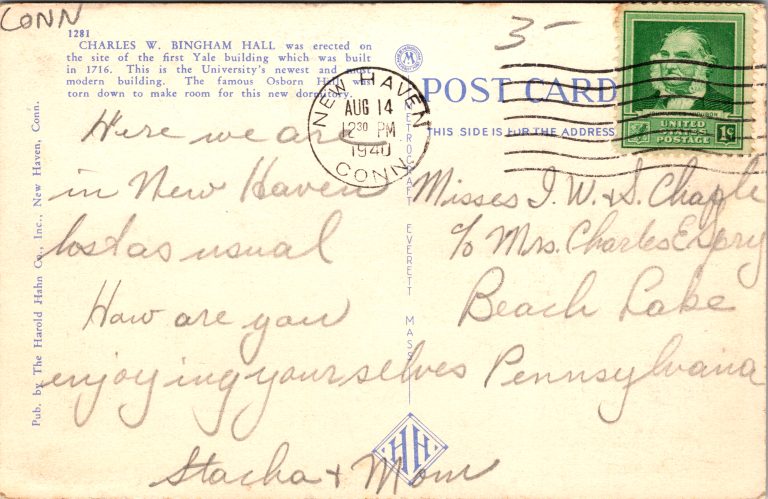 CONN
3-
1281
CHARLES W. BINGHAM HALL was erected on
the site of the first Yale building which was built
in 1716. This is the University's newest and most
modern building. The famous Osborn Hall was
torn down to make room for this new dormitory.
NEW HAVEN
AUG 14
230 PM
1940
CONN.
POST CARD
THIS SIDE IS FOR THE ADDRESS
UNITED
STATES
POSTAGE
1¢
Here we are
in New Haven
lost as usual
How are you
enjoying yourselves
Stacha + Mom
Misses I. W. & S. Chaple
c/o Mrs. Charles Espry
Beach Lake
Pennsylvania
Pub. by The Harold Hahn Co., Inc., New Haven, Conn.
METROCRAFT EVERETT MASS
HH
M